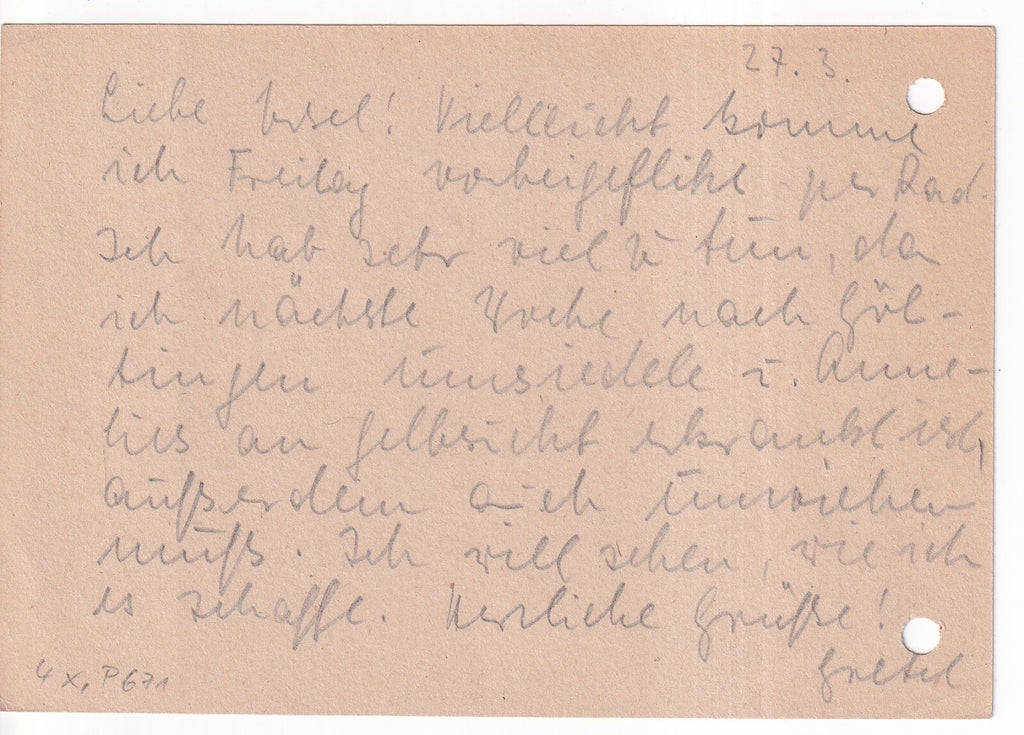 27.3.
Liebe Ursel! Vielleicht komme
ich Freitag vorbeigeflitzt per Rad.
Ich hab sehr viel zu tun, da
ich nächste Woche nach Göt-
tingen umsiedele u. Anne-
lies an Gelbsucht erkrankt ist,
außerdem auch umziehen
muß. Ich will sehen, wie ich
es schaffe. Herzliche Grüße!
Gretel
4x, P671